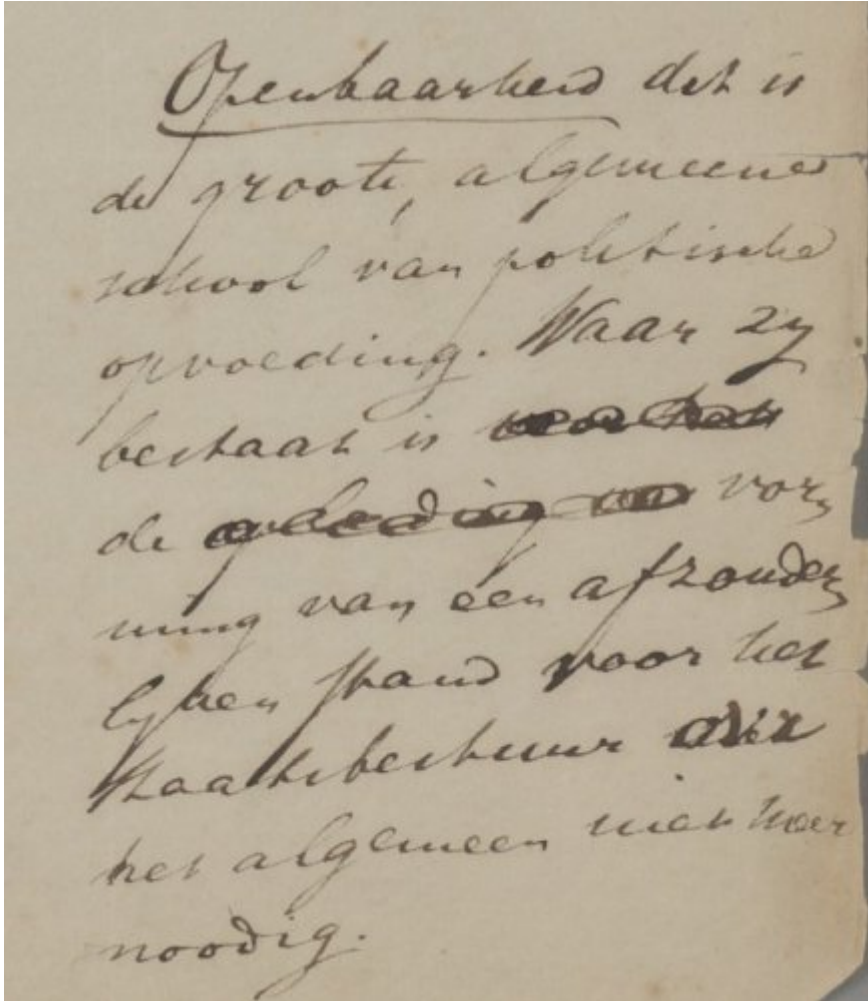 Openbaarheid dat is
de groote, algemeene
school van politische
opvoeding. Waar zy
bestaat is
de vor-
ming van een afzonder-
lyken stand voor het
staatsbestuur
het algemeen niet meer
noodig.